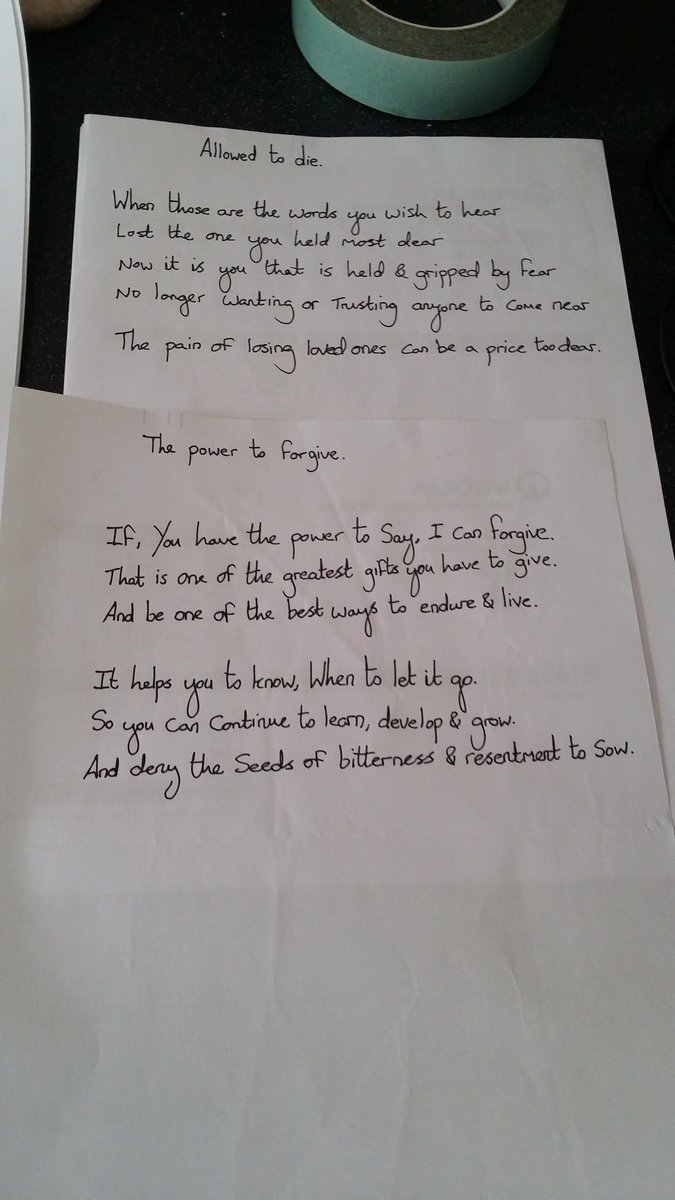 Allowed to die.
When those are the words you wish to hear
Lost the one you held most dear
Now it is you that is held & gripped by fear
No longer wanting or Trusting anyone to come near
The pain of losing loved ones can be a price too dear.
The power to forgive.
If, You have the power to Say, I can forgive.
That is one of the greatest gifts you have to give.
And be one of the best ways to endure & live.
It helps you to know, When to let it go.
So you can continue to learn, develop & grow.
And deny the Seeds of bitterness & resentment to Sow.